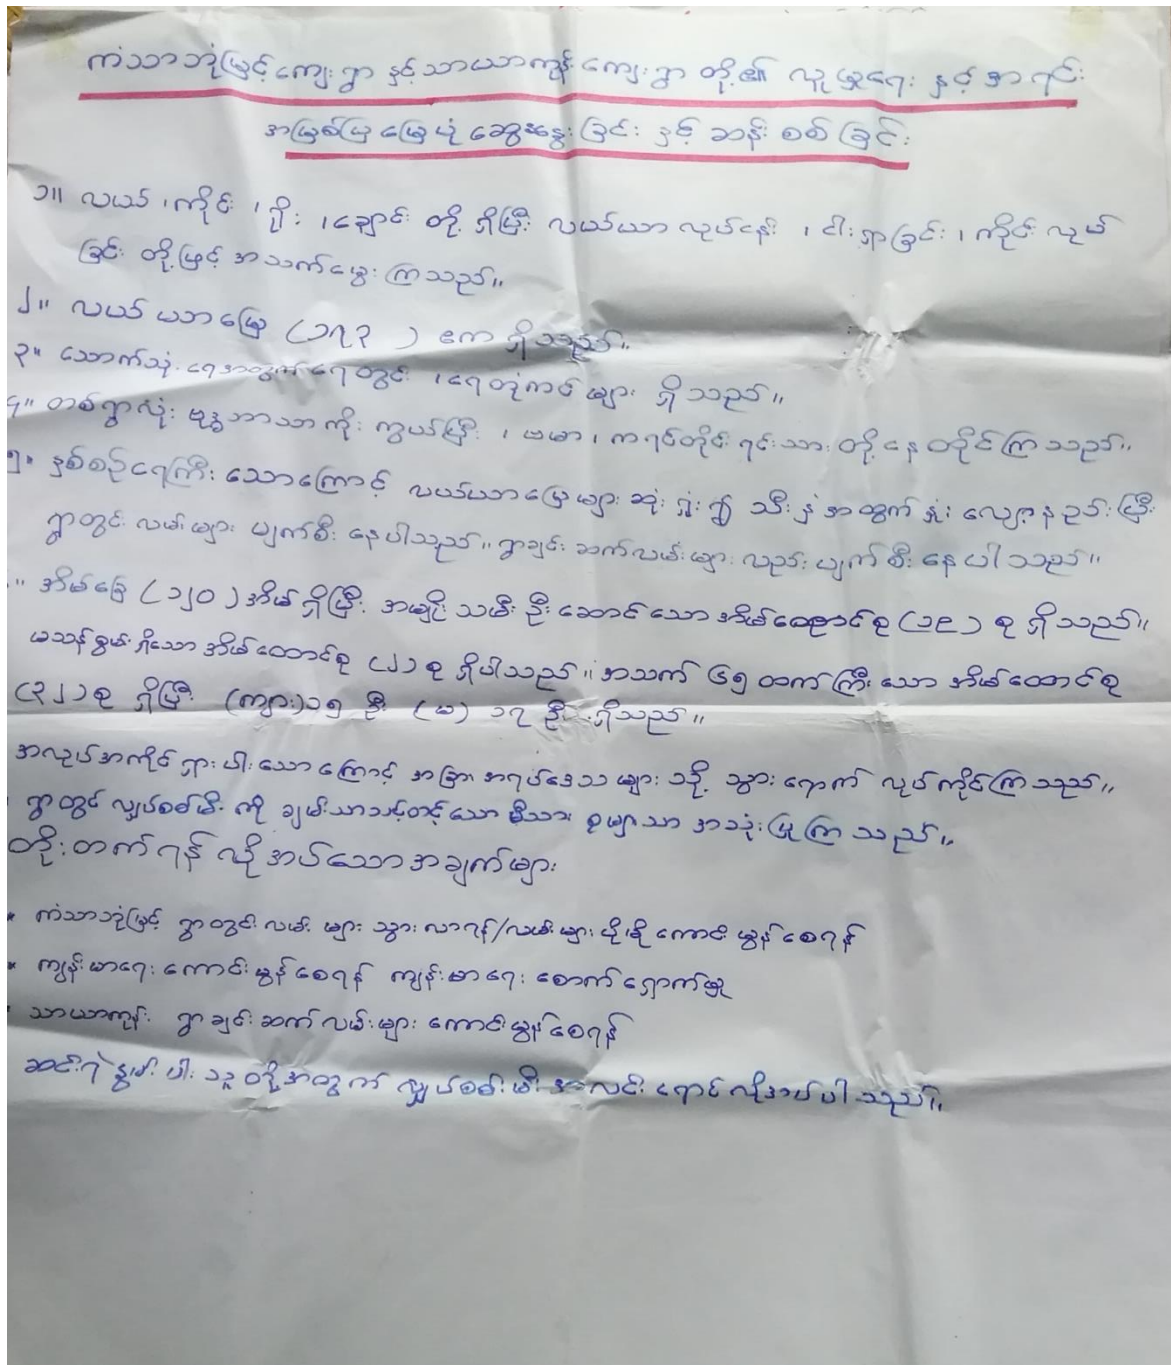 ကံသာဘုံမြင့်ကျေးရွာ နှင့်သာယာကုန်းကျေးရွာ တို့၏ လူမှုရေး နှင့် အရင်း
အမြစ်ပြမြေပုံ ဆွေးနွေးခြင်း နှင့် ဆန်းစစ်ခြင်း
၁။ လယ် ၊ကိုင်း ၊ရိုး ၊ချောင်း တို့ ရှိပြီး လယ်ယာလုပ်ငန်း ၊ ငါးရှာခြင်း ၊ ကိုင်းလုပ်
ခြင်း တို့ဖြင့် အသက်မွေးကြသည်။
၂။ လယ်ယာမြေ (၁၇၃ ) ဧက ရှိသည်။
၃။ သောက်သုံးရေအတွက် ရေတွင်း ၊ရေတုံကင်များ ရှိသည်။
၄။ တစ်ရွာလုံး ဗုဒ္ဓဘာသာကိုးကွယ်ပြီး ၊ ဗမာ ၊ ကရင်တိုင်းရင်းသား တို့နေထိုင်ကြသည်။
၅။ နှစ်စဉ်ရေကြီးသောကြောင့် လယ်ယာမြေများ ဆုံးရှုံး၍ သီးနှံအထွက်နှုံး လျော့နည်းပြီး
ရွာတွင်းလမ်းများ ပျက်စီးနေပါသည်။ ရွာချင်းဆက်လမ်းများလည်း ပျက်စီးနေပါသည်။
။ အိမ်ခြေ (၁၂၀) အိမ်ရှိပြီး အမျိုးသမီးဦးဆောင်သော အိမ်ထောင်စု (၁၉) စု ရှိသည်။
မသန်စွမ်းရှိသော အိမ်ထောင်စု (၂) စု ရှိပါသည်။ အသက် ၆၅ ထက်ကြီးသော အိမ်ထောင်စု
(၃၂) စု ရှိပြီး (ကျား)၁၅ ဦး (မ) ၁၇ ဦး ရှိသည်။
အလုပ်အကိုင်ရှားပါးသောကြောင့် အခြားအရပ်ဒေသများသို့ သွားရောက် လုပ်ကိုင်ကြသည်။
ရွာတွင် လျှပ်စစ်မီးကို ချမ်းသာသင့်တင့်သော မိသားစုများသာ အသုံးပြုကြသည်။
တိုးတက်ရန် လိုအပ်သောအချက်များ
* ကံသာဘုံမြင့် ရွာတွင်းလမ်းများ သွားလာရန်/လမ်းများပိုမိုကောင်းမွန်စေရန်
* ကျန်းမာရေးကောင်းမွန်စေရန် ကျန်းမာရေးစောက်ရှောက်မှု
သာယာကုန်း ရွာချင်းဆက်လမ်းများ ကောင်းမွန်စေရန်
ဆင်းရဲနွမ်းပါးသူတို့အတွက် လျှပ်စစ်မီးအလင်းရောင်လိုအပ်ပါသည်။